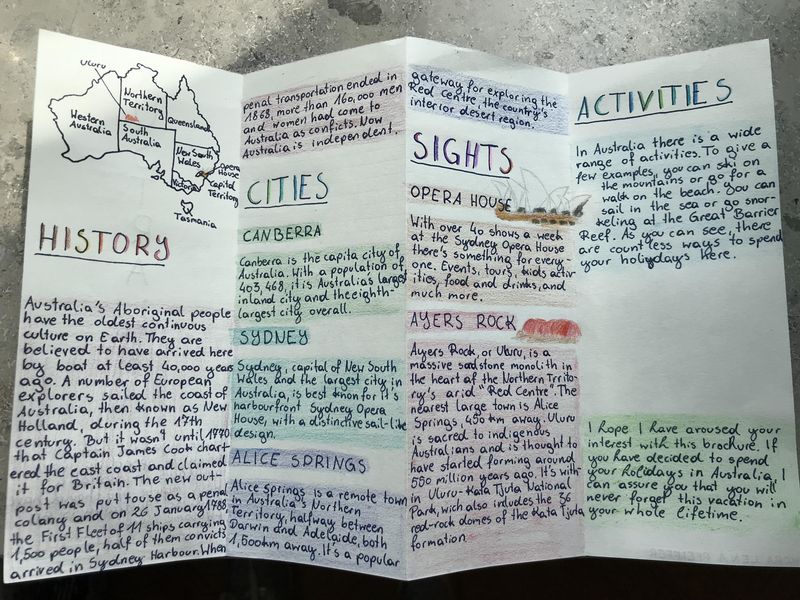 Uluru
Northern
Territory
Western
Australia
Queensland
South
Australia
New South
Wales
Opera
House
Capital
Territory
Victoria
Tasmania
HISTORY
Australia's Aboriginal people
have the oldest continuous
culture on Earth. They are
believed to have arrived here
by boat at least 40,000 years
ago. A number of European
explorers sailed the coast of
Australia, then known as New
Holland, during the 17th
century. But it wasn't until 1770
that Captain James Cook chart-
ered the east coast and claimed
it for Britain. The new out-
post was put touse as a penal
colany and on 26 January 1788,
the First Fleet of 11 ships carrying
1,500 people, half of them convicts
arrived in Sydney Harbour. When
penal transportation ended in
1868, more than 160,000 men
and women had come to
Australia as conficts. Now
Australia is independent.
CITIES
CANBERRA
Canberra is the capita city of
Australia. With a population of
403,468, it is Australia's largest
inland city and the eighth-
largest city overall.
SYDNEY
Sydney, capital of New South
Wales and the largest city in
Australia, is best knon for it's
harbourfront Sydney Opera
House, with a distinctive sail-like
design.
ALICE SPRINGS
Alice Springs is a remote town
in Australia's Northern
Territory, halfway between
Darwin and Adelaide, both
1,500km away. It's a popular
gateway for exploring the
Red Centre, the country's
interior desert region.
SIGHTS
OPERA HOUSE
With over 40 shows a week
at the Sydney Opera House
there's something for every-
one. Events, tours, kids activ-
ities, food and drinks, and
much more.
AYERS ROCK
Ayers Rock, or Uluru, is a
massive sandstone monolith in
the heart of the Northern Trrito-
ry's arid "Red Centre". The
nearest large town is Alice
Springs, 450km away. Uluru
is sacred to indigenous
Australians and is thought to
have started forming around
550 million years ago. It's with-
in Uluru-Kata Tjuta National
Park, wich also includes the 36
red-rock domes of the Kata Tjuta
formation.
ACTIVITIES
In Australia there is a wide
range of activities. To give a
few examples, you can ski on
the mountains or go for a
walk on the beach. You can
sail in the sea or go snor-
keling at the Great Barrier
Reef. As you can see, there
are countless ways to spend
your holiydays here.
I hope I have aroused your
interest with this brochure. If
you have decided to spend
your holidays in Australia, I
can assure you that you will
never forget this vacation in
your whole lifetime.